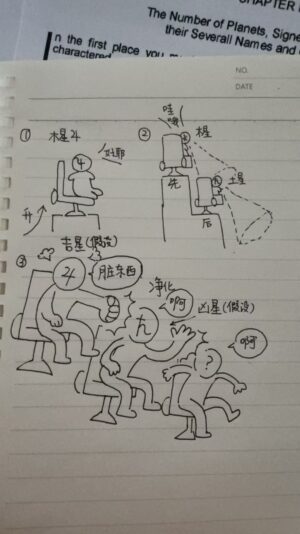 CHAPTER
The Number of Planets, Signe
their Severall Names and
In the first place you m
charactered
NO.
DATE
① 木星♃
② 哇哦! 木星
好耶
♃
升
先
土星
后
吉星(假设)
③ ♃ 脏东西
净化
啊
凶星(假设)
?
啊